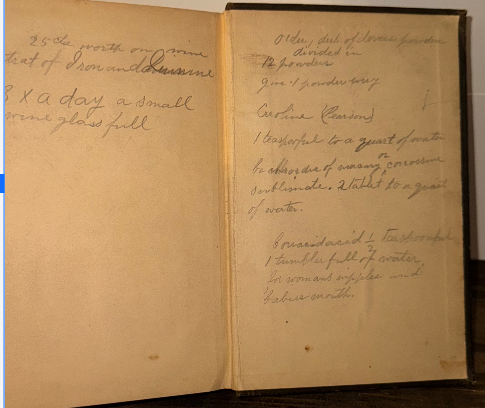 25 cts worth on wine
trat of Iron and Quinine
3 x a day a small
wine glass full
of Dovers powder
divided in
12 powders
give 1 powder every
Creoline (Pearson)
1 teaspoonful to a quart of water
or
Bichloride of mercury corrosive
sublimate. 2 tablet to a quart
of water.
Boracic acid 1/2 teaspoonful
1 tumbler full of water
for womans nipples and
babies mouth.